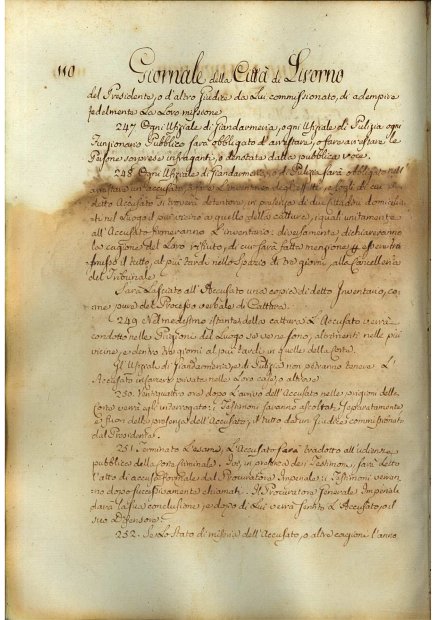 110
Giornale della Città di Livorno
del Presidente, o d'altro Giudice da Lui commissionato, di adempire
fedelmente La Loro missione
247. Ogni Ufiziale di Giandarmeria, ogni Ufiziale di Pulizia ogni
Funzionario Pubblico sarà obbligato d'arrestare, o fare arrestare le
Persone sorprese infraganti, o denotate dalla pubblica voce.
248. Ogni Ufiziale di Giandarmeria, o di Pulizia sarà obbligato nell'
arrestare un'accusato, a fare L'inventario degli effetti, e fogli di cui
detto Accusato si troverà detentore in presenza di due Cittadini domicilia-
ti nel Luogo il più vicino a quello della cattura, i quali unitamente
all'Accusato firmeranno L'inventario: diversamente dichiareranno
le cagioni del Loro rifiuto, di cui sarà fatta menzione
il tutto, al più tardi nello spazio di tre giorni, alla Cancelleria
del Tribunale
Sarà Lasciato all'Accusato una copia di detto Inventario, co-
me pure del Processo verbale di Cattura.
249. Nel medesimo istante della cattura L'Accusato verrà
condotto nelle Prigioni del Luogo se ve ne sono, altrimenti nelle più
vicine, e dentro tre giorni al più tardi, in quelle della Corte.
Gl'Ufiziali di Giandarmeria, e di Pulizia non potranno tenere L'
Accusato in carcere privato nelle Loro case, o altrove
250. Ventiquattro ore dopo L'arrivo dell'Accusato nelle prigioni della
Corte verrà egli interrogato; I Testimoni saranno ascoltati separatamente
e fuori della presenza dell'Accusato, il tutto da un Giudice commissionato
dal Presidente.
251. Terminato L'esame, L'Accusato sarà tradotto all'udienza
pubblica della Corte Criminale. Poi, in presenza dei Testimoni, sarà Letto
l'atto di accusa formale dal Procuratore Imperiale: i Testimoni verran-
no dopo successivamente chiamati. Il Procuratore Generale Imperiale
darà la sua conclusione, e dopo di Lui verrà sentito L'Accusato, o il
suo Difensore.
252. Se Lo stato di miseria dell'Accusato, o altre cagioni l'anno